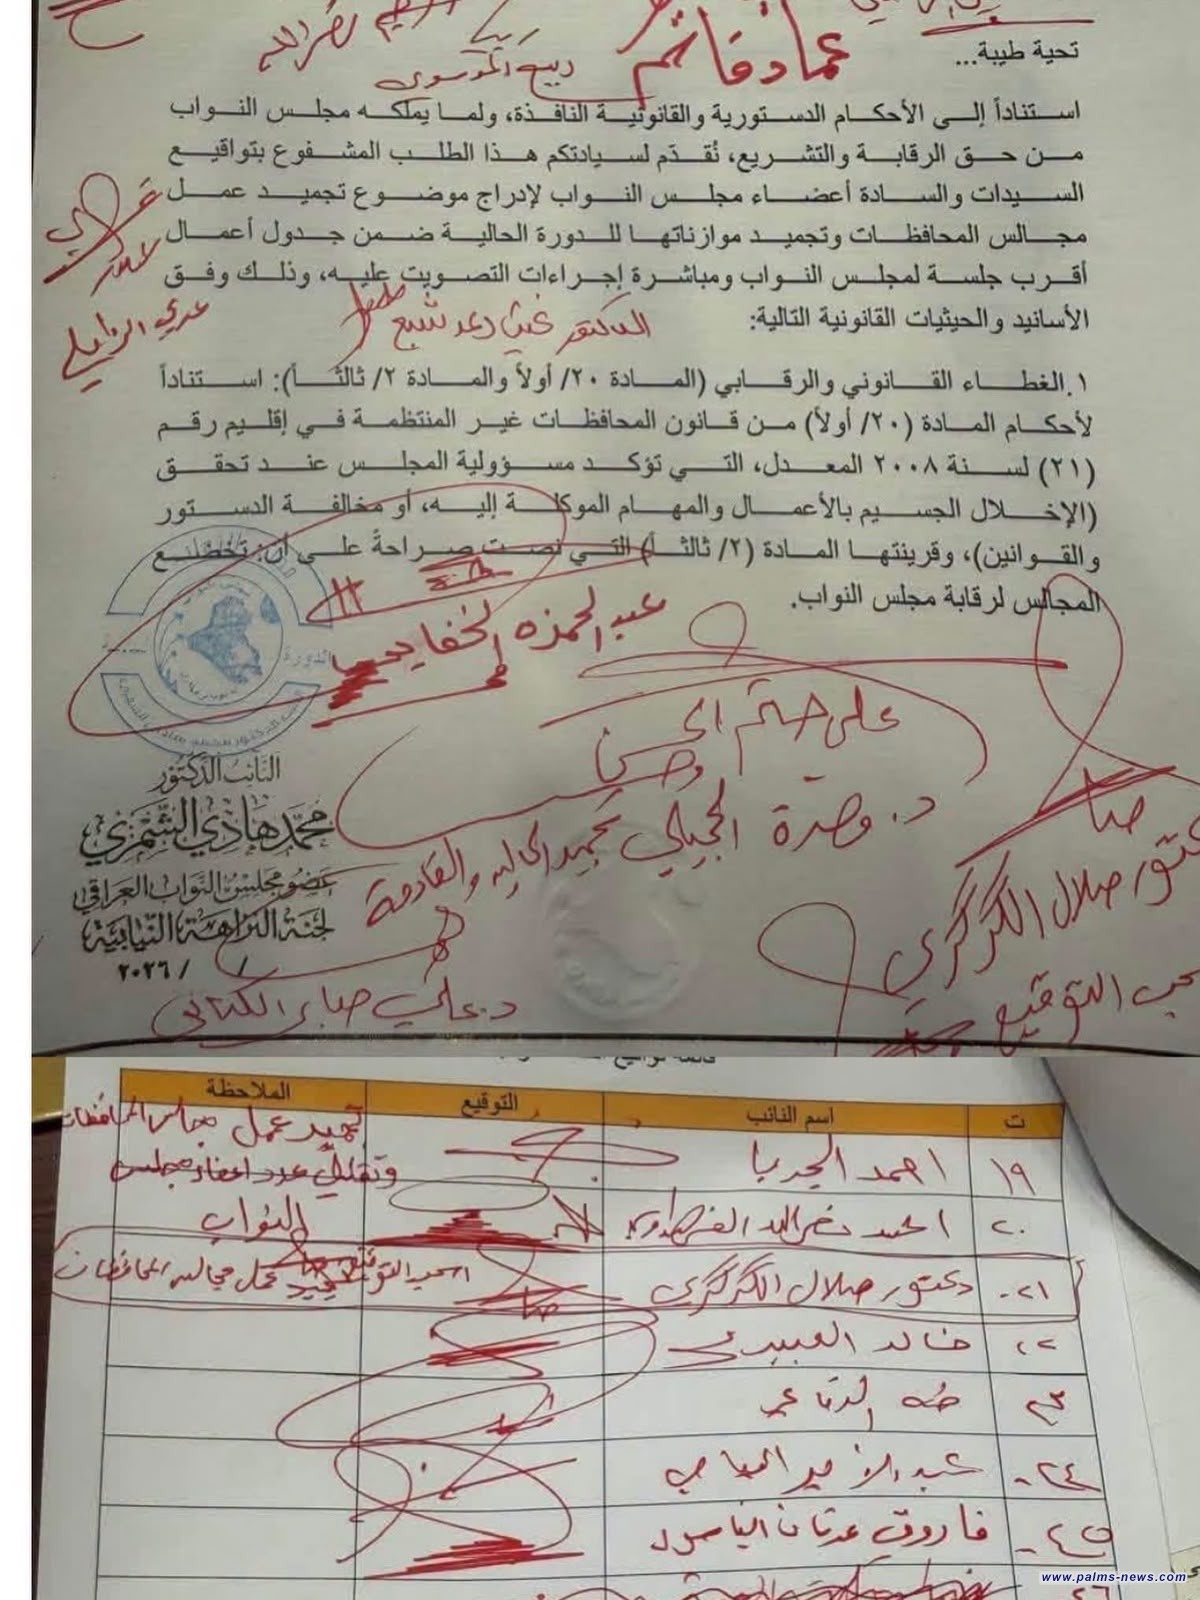 عماد قاسم
تحية طيبة...
ربيع الموسوي
استناداً إلى الأحكام الدستورية والقانونية النافذة، ولما يملكه مجلس النواب
من حق الرقابة والتشريع، نُقدّم لسيادتكم هذا الطلب المشفوع بتواقيع
السيدات والسادة أعضاء مجلس النواب لإدراج موضوع تجميد عمل
مجالس المحافظات وتجميد موازناتها للدورة الحالية ضمن جدول أعمال
أقرب جلسة لمجلس النواب ومباشرة إجراءات التصويت عليه، وذلك وفق
الأسانيد والحيثيات القانونية التالية:
الدكتور غيث رعد شبع
١.الغطاء القانوني والرقابي (المادة ٢٠/ أولاً والمادة ٢/ ثالثاً): استناداً
لأحكام المادة (٢٠/ أولاً) من قانون المحافظات غير المنتظمة في إقليم رقم
(٢١) لسنة ٢٠٠٨ المعدل، التي تؤكد مسؤولية المجلس عند تحقق
(الإخلال الجسيم بالأعمال والمهام الموكلة إليه، أو مخالفة الدستور
والقوانين)، وقرينتها المادة (٢/ ثالثاً) التي نصت صراحةً على أن: تخضع
المجالس لرقابة مجلس النواب.
عبد الحمزه الخفاجي
النائب الدكتور
محمد هادي الشمري
عضو مجلس النواب العراقي
لجنة النزاهة النيابية
/ / ٢٠٢٦
د. الجميلي تجميد الحاليه والقادمة
دكتور صلال الكركري
سحب التوقيع
د. علي صابر الكناني
ت اسم النائب التوقيع الملاحظة
١٩ احمد الجربا تجميد عمل مجالس المحافظات
وتقليل عدد اعضاء مجلس
النواب
٢٠
٢١ دكتور صلال الكركري اسحب التوقيع تجميد عمل مجالس المحافظات
٢٢ خالد العبيدي
٢٣ طه الدفاعي
٢٤ عبد الأمير المياحي
٢٥ فاروق عدنان
٢٦
www.palms-news.com